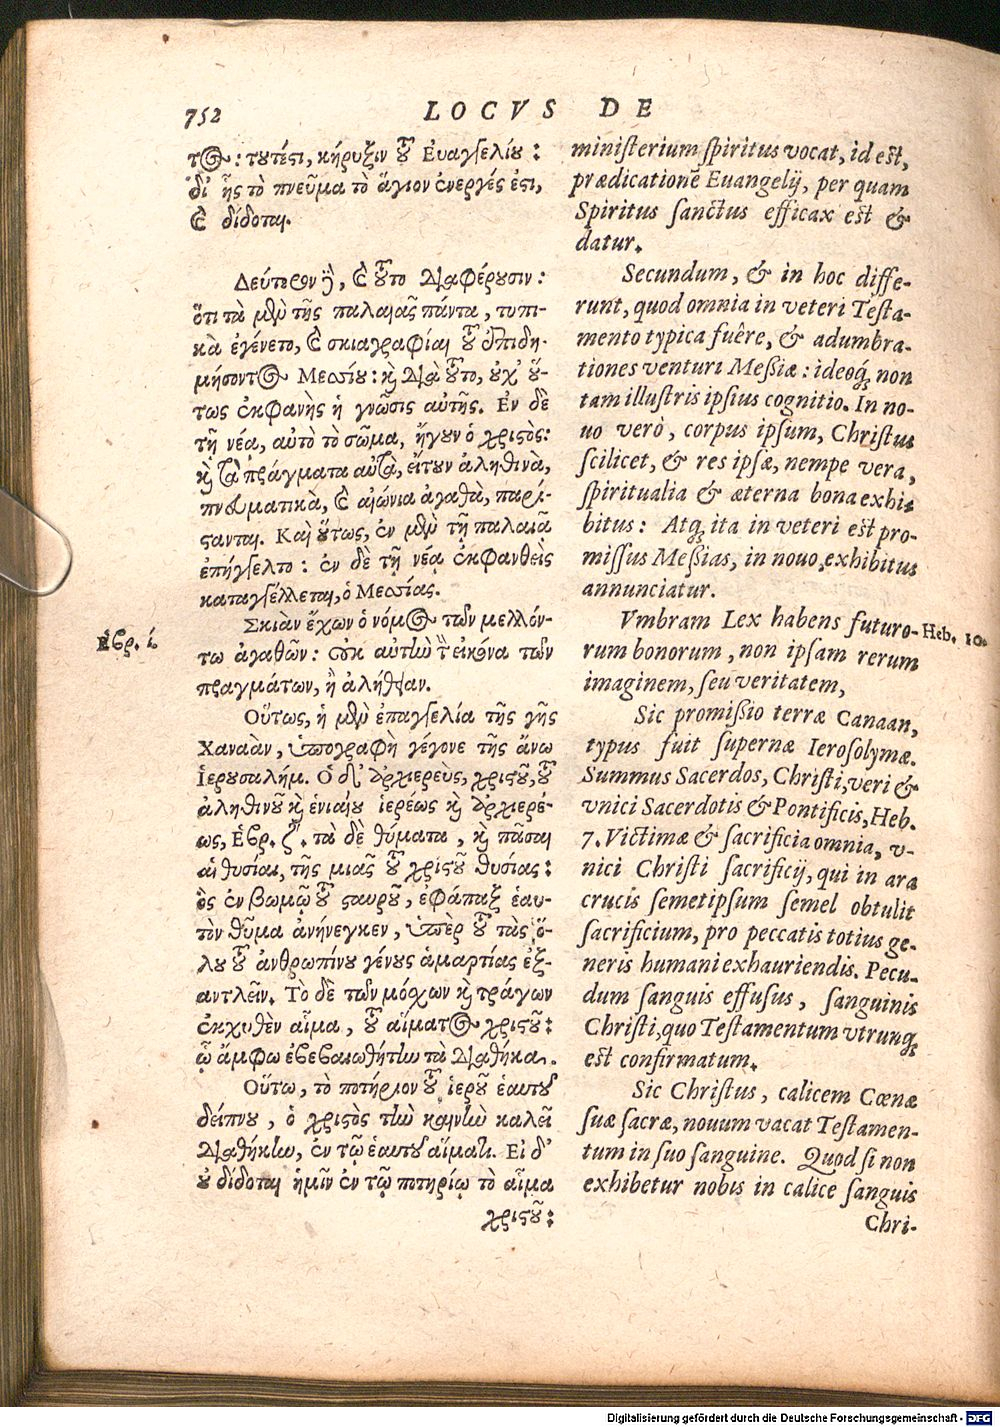 752
LOCVS DE
τος: τουτέστι, κήρυξιν τοῦ Ἐυαγγελίου:
δι' ἧς τὸ πνεῦμα τὸ ἅγιον ἐνεργές ἐστι,
καὶ δίδοται.
Δεύτερον δὲ, καὶ τοῦτο διαφέρουσιν:
ὅτι τὰ μὲν τῆς παλαιᾶς πάντα, τυπι-
κὰ ἐγένετο, καὶ σκιαγραφίαι τοῦ ἐπιδη-
μήσοντος Μεσσίου: καὶ διὰ τοῦτο, οὐχ' οὕ-
τως ἐκφανὴς ἡ γνῶσις αὐτῆς. Ἐν δὲ
τῇ νέα, αὐτὸ τὸ σῶμα, ἤγουν ὁ χριστὸς:
καὶ τὰ πράγματα αὐτὰ, εἴτουν ἀληθινὰ,
πνευματικὰ, καὶ αἰώνια ἀγαθὰ, παρί-
στανται. Καὶ οὕτως, ἐν μὲν τῇ παλαιᾷ
ἐπήγγελτο: ἐν δὲ τῇ νέα ἐκφανθεὶς
καταγγέλλεται, ὁ Μεσσίας.
Σκιὰν ἔχων ὁ νόμος τῶν μελλόν-
των ἀγαθῶν: οὐκ αὐτὴν τὴν εἰκόνα τῶν
πραγμάτων, ἢ ἀλήθειαν.
Οὕτως, ἡ μὲν ἐπαγγελία τῆς γῆς
Χαναὰν, ὑπογραφὴ γέγονε τῆς ἄνω
Ἱερουσαλήμ. Ὁ δ' ἀρχιερεὺς, χριστοῦ, τοῦ
ἀληθινοῦ καὶ ἑνιαίου ἱερέως καὶ ἀρχιερέ-
ως, Ἑβρ. ζ'. τὰ δὲ θύματα, καὶ πᾶσαι
αἱ θυσίαι, τῆς μιᾶς τοῦ χριστοῦ θυσίας:
ὃς ἐν βωμῷ τοῦ σταυροῦ, ἐφάπαξ ἑαυ-
τὸν θῦμα ἀνήνεγκεν, ὑπὲρ τοῦ τὰς ὅ-
λου τοῦ ἀνθρωπίνου γένους ἁμαρτίας ἐξ-
αντλεῖν. Τὸ δὲ τῶν μόχων καὶ τράγων
ἐκχυθὲν αἷμα, τοῦ αἵματος χριστοῦ:
ᾧ ἄμφω ἐβεβαιωθήτην τὰ διαθήκα.
Οὕτω, τὸ ποτήριον τοῦ ἱεροῦ ἑαυτοῦ
δείπνου, ὁ χριστὸς τὴν καινὴν καλεῖ
διαθήκην, ἐν τῷ ἑαυτοῦ αἵματι. Εἰ δ'
οὐ δίδοται ἡμῖν ἐν τῷ ποτηρίῳ τὸ αἷμα
χριστοῦ:
Ἑβρ. ί.
ministerium spiritus vocat, id est,
prædicationē Euangelij, per quam
Spiritus sanctus efficax est &
datur.
Secundum, & in hoc diffe-
runt, quod omnia in veteri Testa-
mento typica fuêre, & adumbra-
tiones venturi Meßiæ: ideoq́; non
tam illustris ipsius cognitio. In no-
uo verò, corpus ipsum, Christus
scilicet, & res ipsæ, nempe vera,
spiritualia & æterna bona exhi-
bitus: Atq; ita in veteri est pro-
missus Meßias, in nouo exhibitus
annunciatur.
Vmbram Lex habens futuro-
rum bonorum, non ipsam rerum
imaginem, seu veritatem,
Sic promißio terræ Canaan,
typus fuit supernæ Ierosolymæ.
Summus Sacerdos, Christi, veri &
vnici Sacerdotis & Pontificis, Heb.
7. Victimæ & sacrificia omnia, v-
nici Christi sacrificij, qui in ara
crucis semetipsum semel obtulit
sacrificium, pro peccatis totius ge-
neris humani exhauriendis. Pecu-
dum sanguis effusus, sanguinis
Christi, quo Testamentum vtrunq;
est confirmatum.
Sic Christus, calicem Cœnæ
suæ sacræ, nouum vacat Testamen-
tum in suo sanguine. Quod si non
exhibetur nobis in calice sanguis
Chri-
Heb. 10.
Digitalisierung gefördert durch die Deutsche Forschungsgemeinschaft - DFG